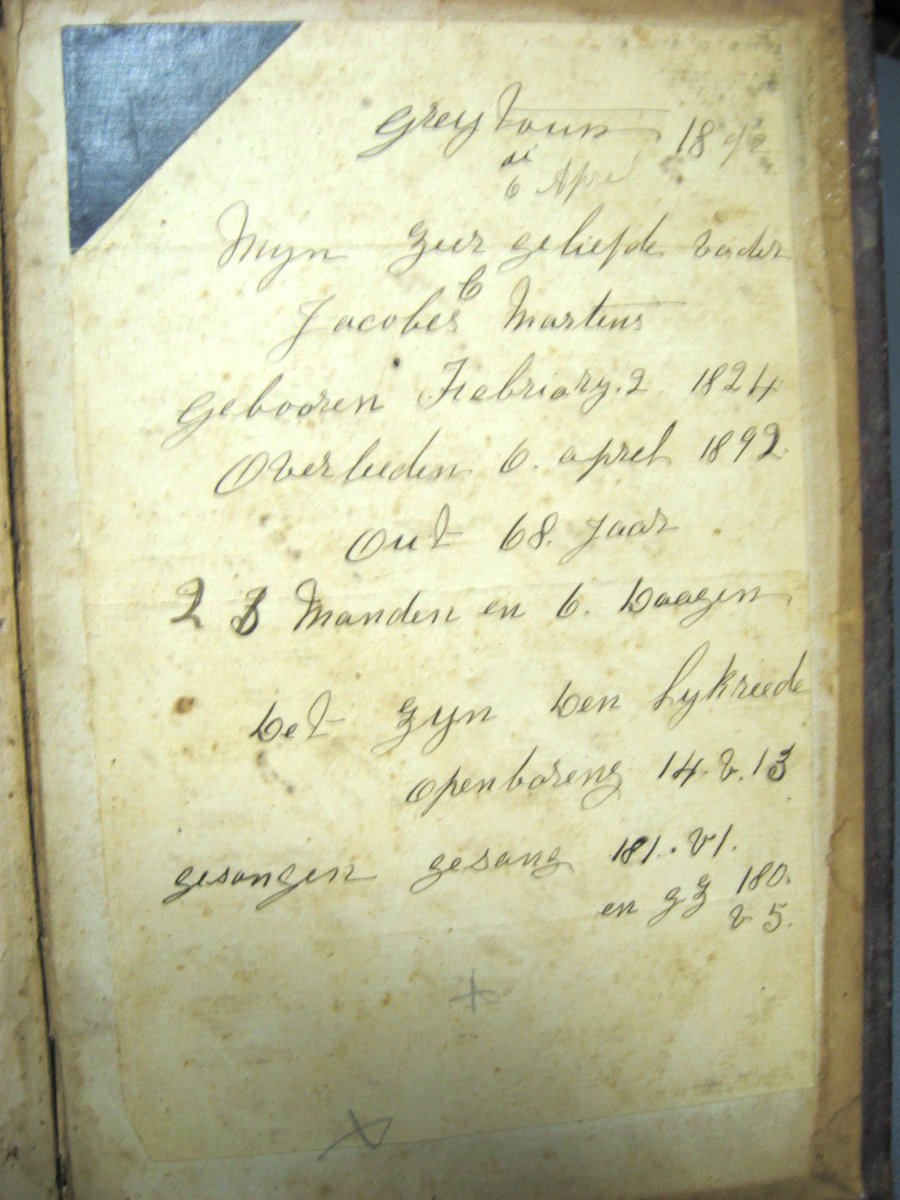 Greytown 1892
de
6 April
Myn zeer geliefde vader
C
Jacobes Martens
Gebooren Febriary. 2 1824
Overleeden 6. aprel 1892.
Out 68. jaar
2 3 Manden en 6. Daagen
Det zyn Den Lykreede
Openbareng 14. v. 13
gesangen gesang 181. v 1.
en gz 180.
v 5.